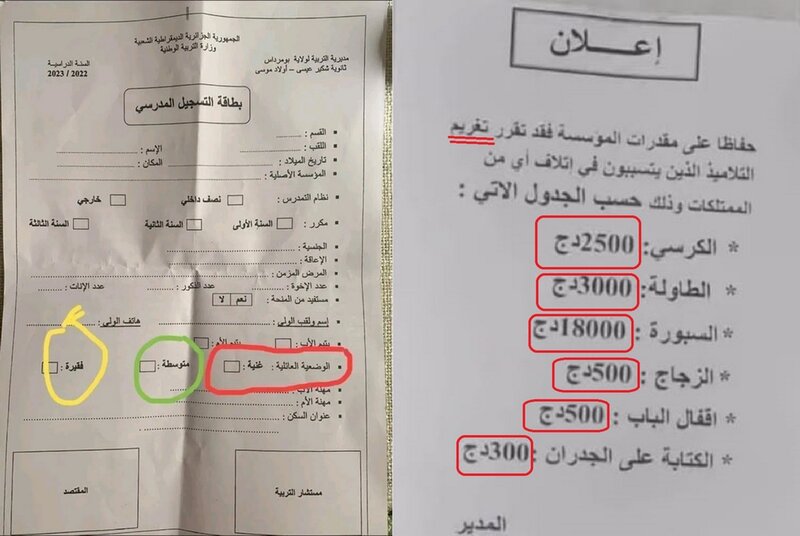 الجمهورية الجزائرية الديمقراطية الشعبية
وزارة التربية الوطنية
مديرية التربية لولاية بومرداس
ثانوية شكير عيسى – أولاد موسى
السنة الدراسية
2022 / 2023
بطاقة التسجيل المدرسي
القسم :
اللقب : الإسم :
تاريخ الميلاد : المكان :
المؤسسة الأصلية :
نظام التمدرس : نصف داخلي خارجي
مكرر : السنة الأولى السنة الثانية السنة الثالثة
الجنسية :
الإعاقة :
المرض المزمن :
عدد الإخوة : عدد الذكور : عدد الإناث :
مستفيد من المنحة : نعم لا
إسم ولقب الولي : هاتف الولي :
يتيم الأب : يتيم الأم :
الوضعية العائلية : غنية : متوسطة : فقيرة :
مهنة الأب :
مهنة الأم :
عنوان السكن :
مستشار التربية
المقتصد
إعــلان
حفاظا على مقدرات المؤسسة فقد تقرر تغريم
التلاميذ الذين يتسببون في اتلاف أي من
الممتلكات وذلك حسب الجدول الاتي :
* الكرسي: 2500دج
* الطاولة: 3000دج
* السبورة : 18000دج
* الزجاج : 500دج
* اقفال الباب : 500دج
* الكتابة على الجدران : 300دج
المدير